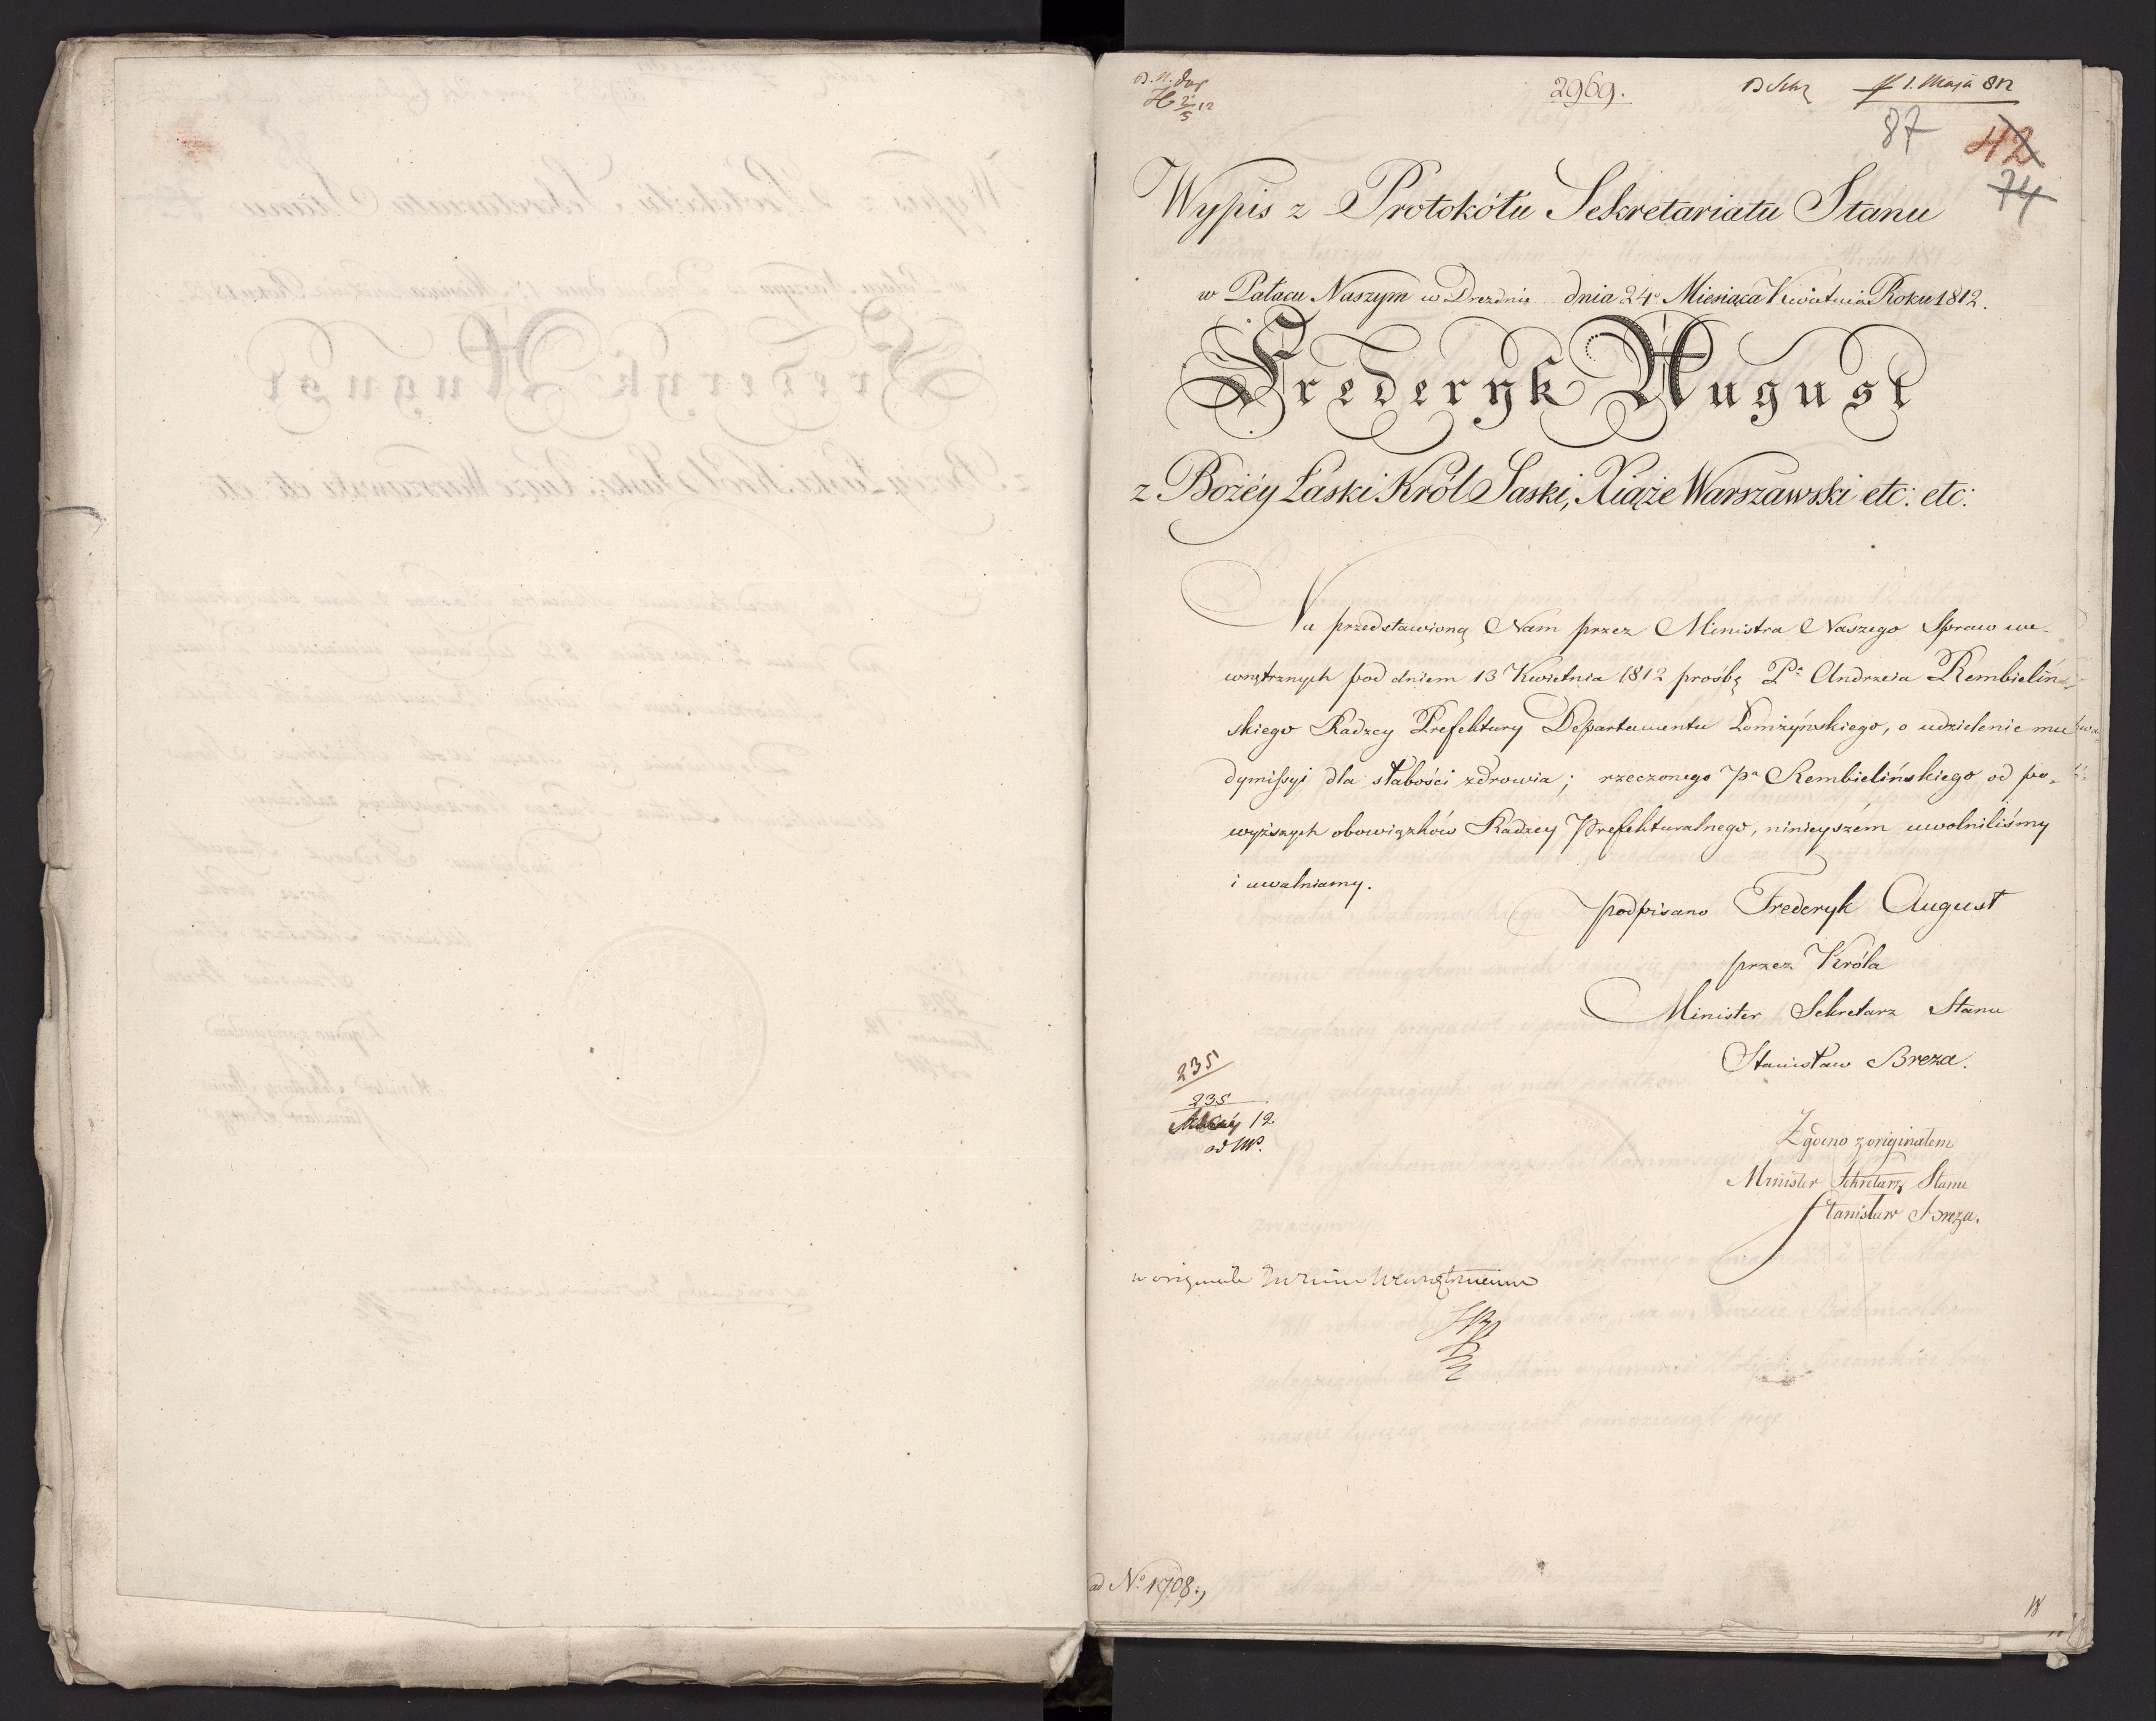 2969.
1. Maja 812
87
42
74
Wypis z Protokółu Sekretariatu Stanu
w Pałacu Naszym w Dreznie dnia 24o Miesiąca Kwietnia Roku 1812.
Frederyk August
z Bożéy Łaski Król Saski, Xiąże Warszawski etc: etc:
Na przedstawioną Nam przez Ministra Naszego Spraw we-
wnętrznych pod dniem 13 Kwietnia 1812 prośbę Pa Andrzeia Rembieliń-
skiego Radzcy Prefektury Departamentu Łomżyńskiego, o udzielenie mu
dymissyi dla słabości zdrowia; rzeczonego Pa Rembielińskiego od po-
wyższych obowiązków Radzcy Prefekturalnego, ninieyszém uwolniliśmy
i uwalniamy.
podpisano Frederyk August
przez Króla
Minister Sekretarz Stanu
Stanisław Breza.
235
235
12
ad
Zgodno z originałem
Minister Sekretarz Stanu
Stanisław Breza.
w originale
ad No 1708.,
18